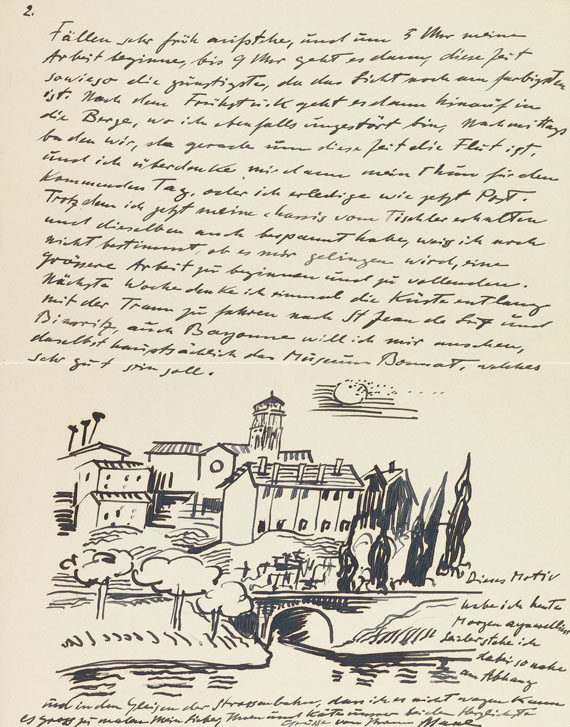 2.
Fällen sehr früh aufstehe, und um 5 Uhr meine
Arbeit beginne, bis 9 Uhr geht es dann, diese Zeit
sowieso die günstigste, da das Licht noch am farbigsten
ist. Nach dem Frühstück geht es dann hinauf in
die Berge, wo ich ebenfalls ungestört bin, Nachmittags
baden wir, da gerade um diese Zeit die Flut ist,
und ich überdenke mir dann mein Thun für den
kommenden Tag, oder ich erledige wie jetzt Post.
Trotzdem ich jetzt meine chassis vom Tischler erhalten
und dieselben auch bespannt habe, weiss ich noch
nicht bestimmt, ob es mir gelingen wird, eine
grössere Arbeit zu beginnen und zu vollenden.
Nächste Woche denke ich einmal die Küste entlang
mit der Tram zu fahren nach St Jean de Luz und
Biarritz, auch Bayonne will ich mir ansehen,
daselbst hauptsächlich das Museum Bonnat, welches
sehr gut sein soll.
Dieses Motiv
habe ich heute
Morgen aquarelliert
leider stehe ich
dabei so nahe
am Abhang
und in den Gleisen der Strassenbahn, dass ich es nicht wagen kann
es gross zu malen. Mein Lieber, Ihnen und Käte immer beiden Herzlichste
Grüsse von Ihrem